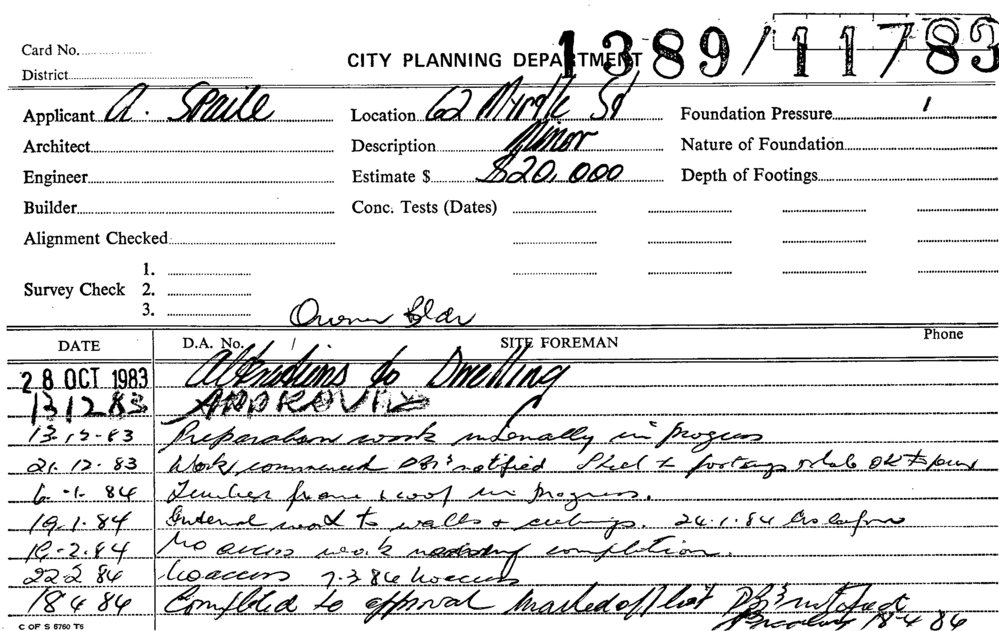 Card No.
CITY PLANNING DEPARTMENT 1389/11783
District
Applicant A. Spaile Location 62 Myrtle St Foundation Pressure
Architect Description Minor Nature of Foundation
Engineer Estimate $ $20,000 Depth of Footings
Builder Conc. Tests (Dates)
Alignment Checked
1.
Survey Check 2.
3.
Owner Bldr
DATE D.A. No. / SITE FOREMAN Phone
28 OCT 1983 Alterations to Dwelling
13 12 83 APPROVED
13-12-83 Preparation work internally in progress
21-12-83 Work commenced notified Steel to footings & slab OK to pour
6-1-84 Timber frame & roof in progress.
19-1-84 Internal work to walls & ceilings. 24.1.84 as before
10-2-84 No access work nearing completion.
22-2-84 No access 7-3-84 No access
18 4 84 Completed to approval marked off list notified
18 4 84
C OF S 6760 T6